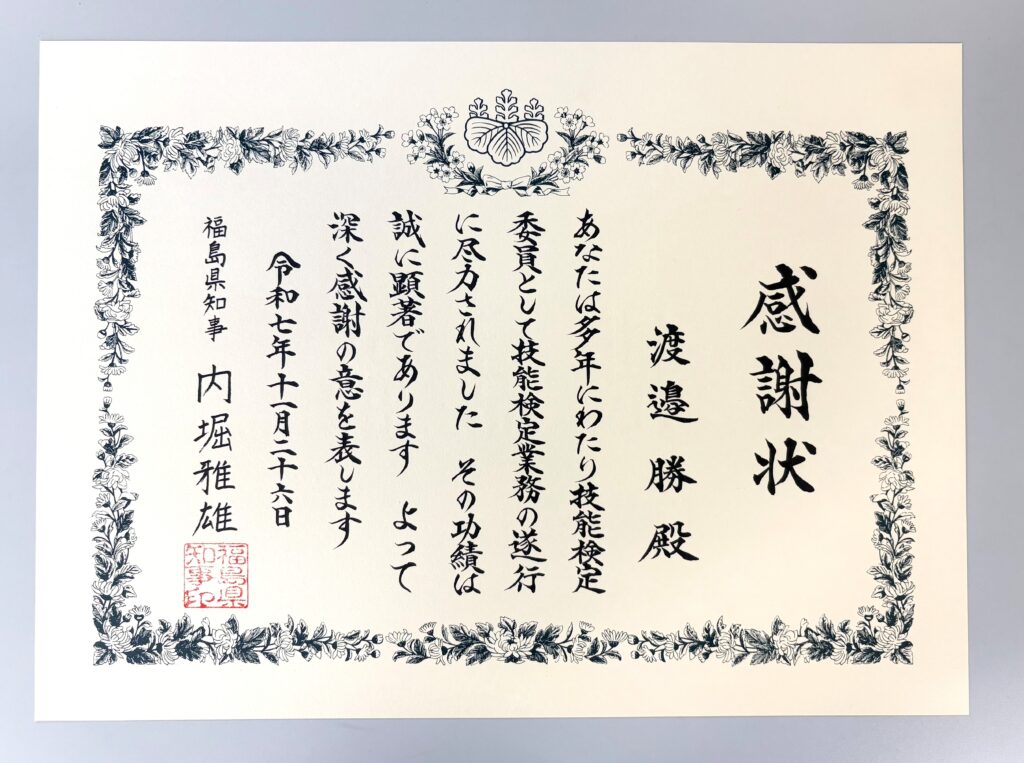 感謝状
渡邉勝殿
あなたは多年にわたり技能検定
委員として技能検定業務の遂行
に尽力されました その功績は
誠に顕著であります よって
深く感謝の意を表します
令和七年十一月二十六日
福島県知事 内堀雅雄
福島県
知事印